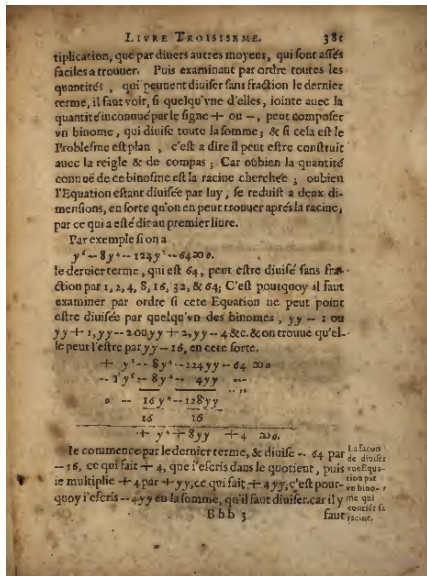 LIVRE TROISIESME. 381
tiplication, que par diuers autres moyens, qui sont assés
faciles a trouuer. Puis examinant par ordre toutes les
quantités, qui peuuent diuiser sans fraction le dernier
terme, il faut voir, si quelqu'vne d'elles, iointe auec la
quantité inconnuë par le signe + ou --, peut composer
vn binome, qui diuise toute la somme; & si cela est le
Problesme est plan, c'est a dire il peut estre construit
auec la reigle & de compas; Car oubien la quantité
connuë de ce binosme est la racine cherchée; oubien
l'Equation estant diuisée par luy, se reduist a deux di-
mensions, en sorte qu'on en peut trouuer aprés la racine,
par ce qui a esté dit au premier liure.
Par exemple si on a
y⁶--8y⁴--124y²--64∞0.
le dernier terme, qui est 64, peut estre diuisé sans fra-
ction par 1, 2, 4, 8, 16, 32, & 64; C'est pourquoy il faut
examiner par ordre si cete Equation ne peut point
estre diuisée par quelqu'vn des binomes, yy--1 ou
yy+1, yy--2 ou yy+2, yy--4 &c. & on trouue qu'el-
le peut l'estre par yy--16, en cete sorte.
+ y⁶--8y⁴--124yy--64∞0
--1y⁶--8y⁴--4yy
--16
0 --16y⁴--128yy
16 16
+ y⁴+8yy +4 ∞0.
Ie commence par le dernier terme, & diuise --64 par
--16, ce qui fait +4, que i'escris dans le quotient, puis
ie multiplie +4 par +yy, ce qui fait +4yy; c'est pour-
quoy i'escris --4yy en la somme, qu'il faut diuiser. car il y
Bbb 3 faut
La façon
de diuiser
vne Equa-
tion par
vn bino-
me qui
contient sa
racine.